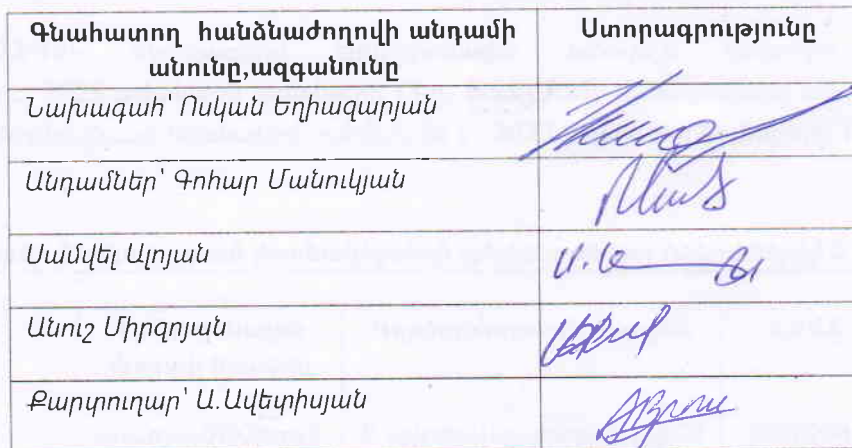 Գնահատող հանձնաժողովի անդամի Ստորագրությունը
անունը,ազգանունը
Նախագահ՝ Ոսկան Եղիազարյան
Անդամներ՝ Գոհար Մանուկյան
Սամվել Ալոյան
Անուշ Միրզոյան
Քարտուղար՝ Ա.Ավետիսյան